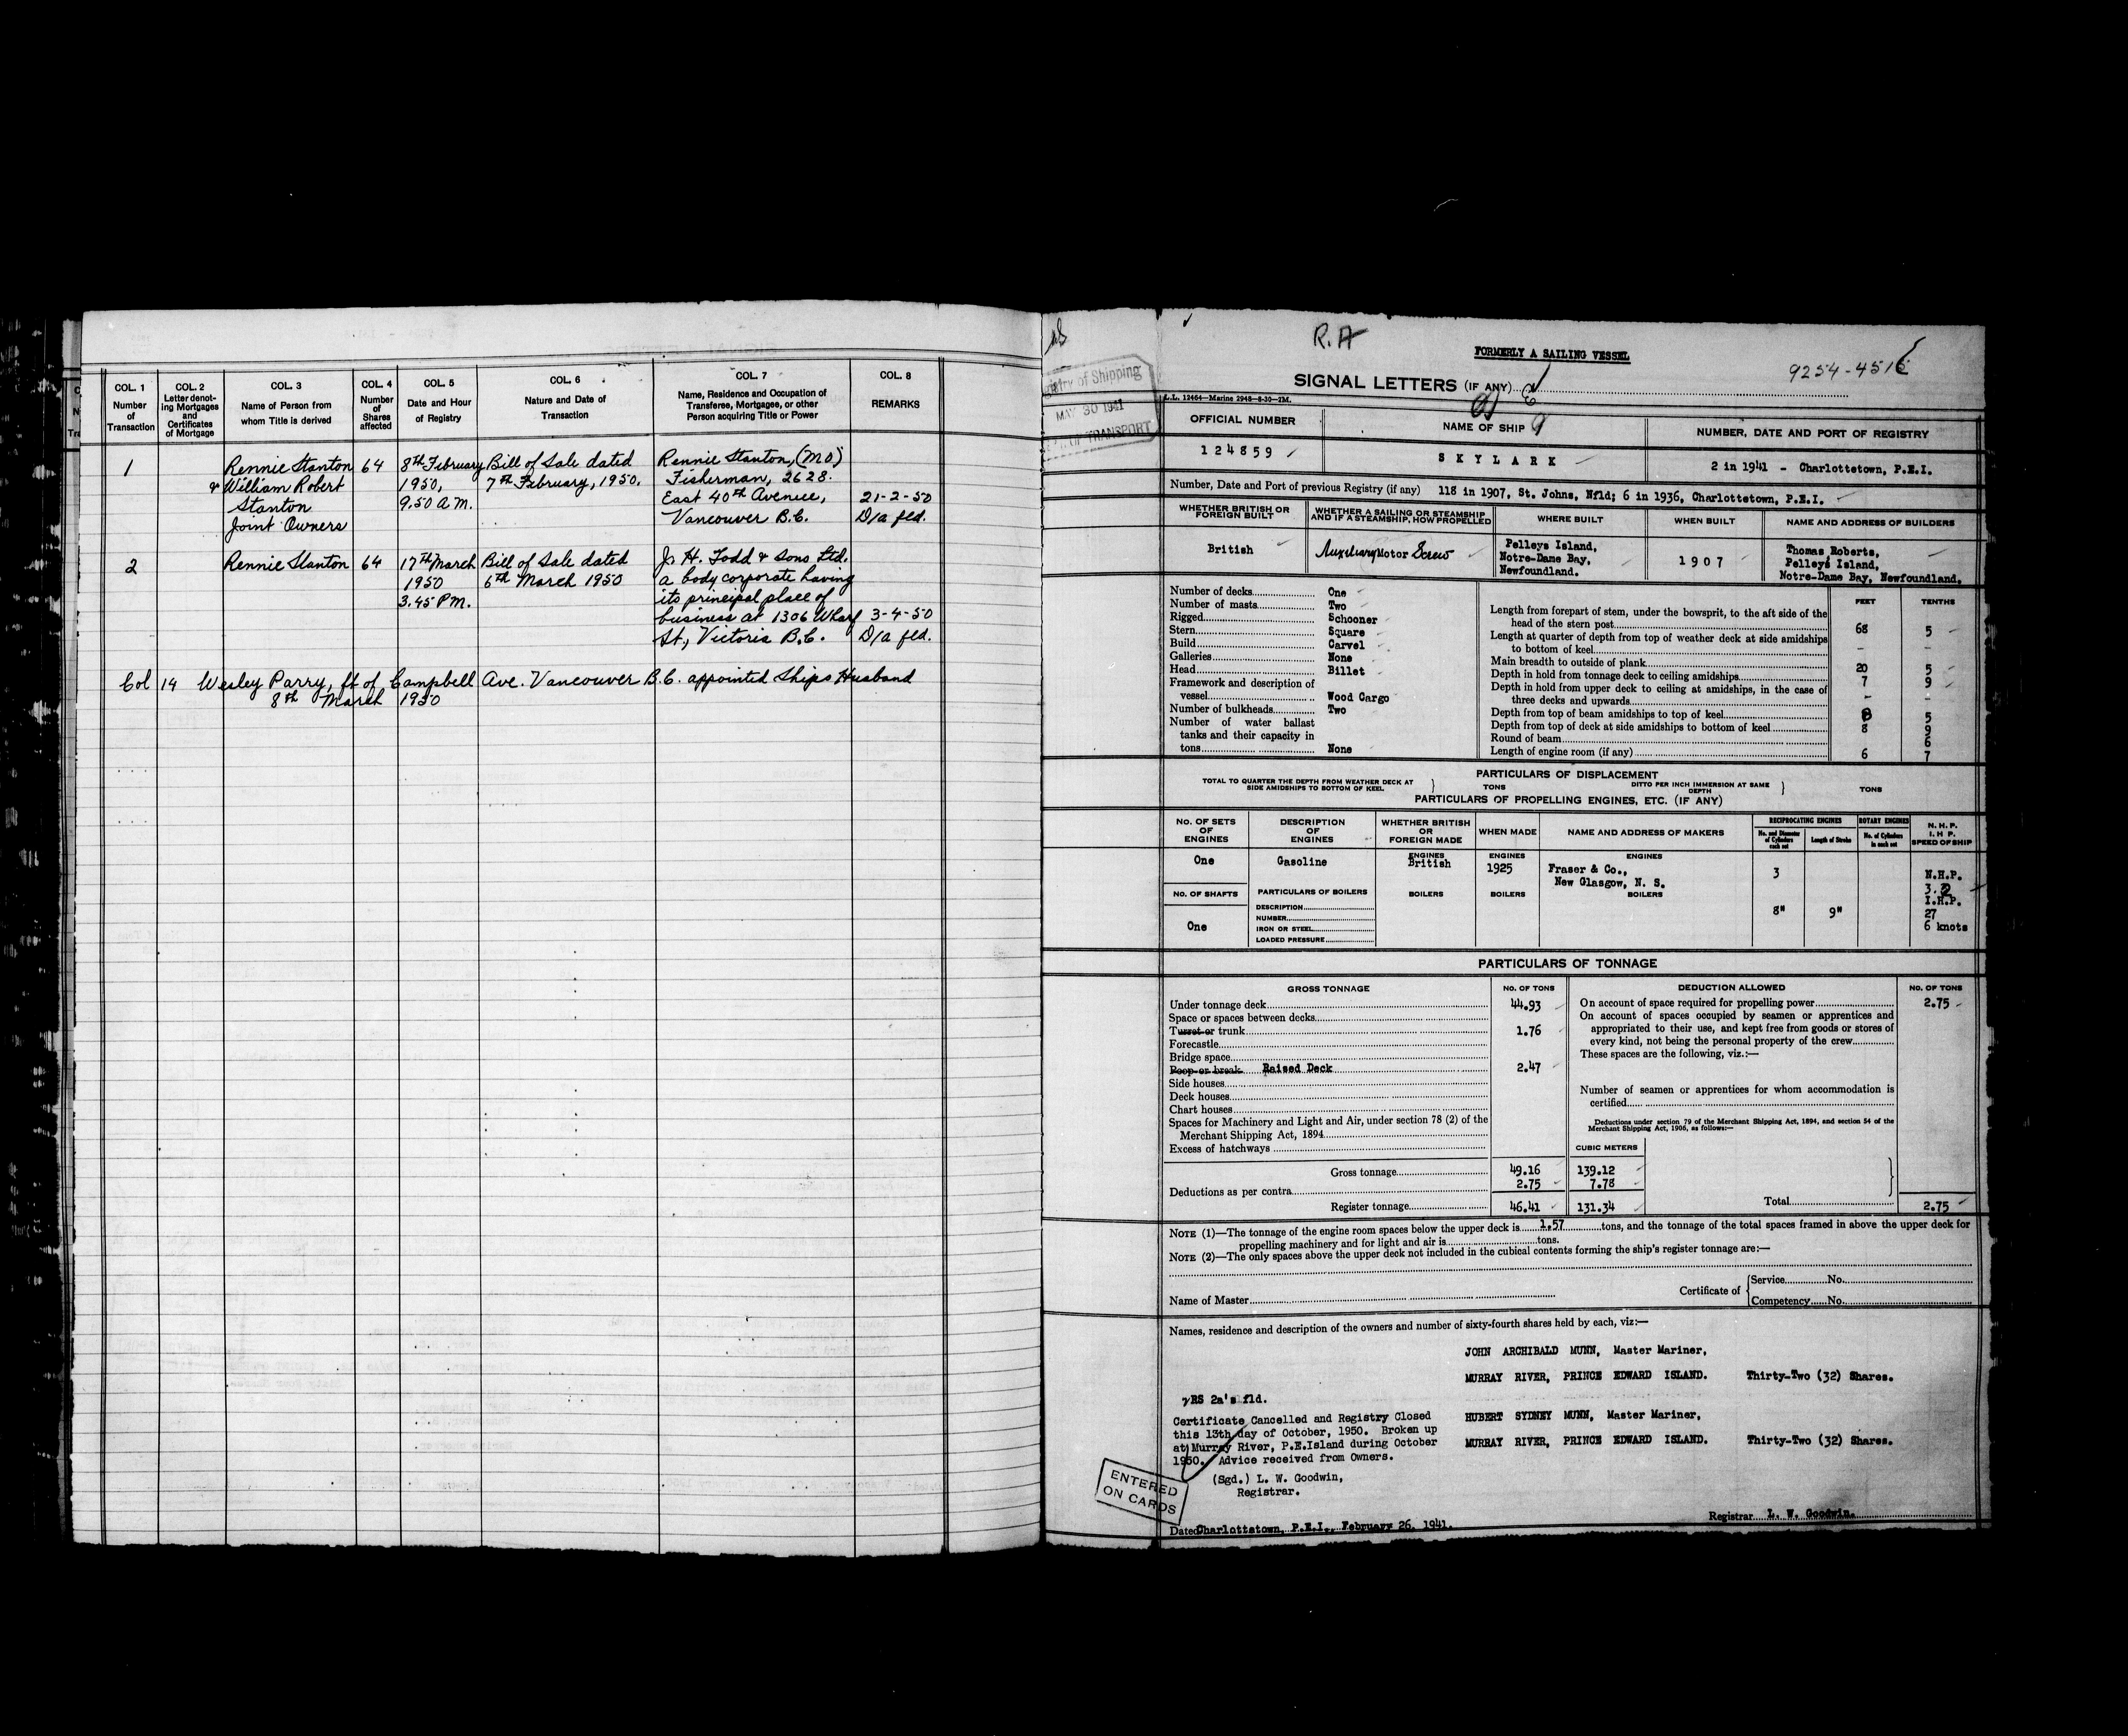 COL. 1 COL. 2 COL. 3 COL. 4 COL. 5 COL. 6 COL. 7 COL. 8
Number of Transaction
Letter denoting Mortgages and Certificates of Mortgage
Name of Person from whom Title is derived
Number of Shares affected
Date and Hour of Registry
Nature and Date of Transaction
Name, Residence and Occupation of Transferee, Mortgagee, or other Person acquiring Title or Power
REMARKS
1 Rennie Stanton 64 8th February Bill of Sale dated Rennie Stanton, (MO)
& William Robert 1950, 7th February, 1950. Fisherman, 2628
Stanton 9.50 A.M. East 40th Avenue, 21-2-50
Joint Owners Vancouver B.C. D/a fld.
2 Rennie Stanton 64 17th March Bill of Sale dated J. H. Todd & Sons Ltd.
1950 6th March 1950 a body corporate having
3.45 P.M. its principal place of
business at 1306 Wharf 3-4-50
St., Victoria B.C. D/a fld.
Col 14 Wesley Parry, ft of Campbell Ave. Vancouver B.C. appointed Ships Husband
8th March 1950
R.A
FORMERLY A SAILING VESSEL
SIGNAL LETTERS (IF ANY)
L.L. 12464—Marine 2948—8-30—2M.
Registry of Shipping
MAY 30 1941
OF TRANSPORT
OFFICIAL NUMBER NAME OF SHIP NUMBER, DATE AND PORT OF REGISTRY
124859 SKYLARK 2 in 1941 - Charlottetown, P.E.I.
Number, Date and Port of previous Registry (if any) 118 in 1907, St. Johns, Nfld; 6 in 1936, Charlottetown, P.E.I.
WHETHER BRITISH OR FOREIGN BUILT
WHETHER A SAILING OR STEAMSHIP AND IF A STEAMSHIP, HOW PROPELLED
WHERE BUILT
WHEN BUILT
NAME AND ADDRESS OF BUILDERS
British
Auxiliary Motor Screw
Pelleys Island,
Notre-Dame Bay,
Newfoundland.
1907
Thomas Roberts,
Pelleys Island,
Notre-Dame Bay, Newfoundland.
Number of decks One
Number of masts Two
Rigged Schooner
Stern Square
Build Carvel
Galleries None
Head Billet
Framework and description of
vessel Wood Cargo
Number of bulkheads Two
Number of water ballast
tanks and their capacity in
tons None
FEET TENTHS
Length from forepart of stem, under the bowsprit, to the aft side of the
head of the stern post 68 5
Length at quarter of depth from top of weather deck at side amidships
to bottom of keel - -
Main breadth to outside of plank 20 5
Depth in hold from tonnage deck to ceiling amidships 7 9
Depth in hold from upper deck to ceiling at amidships, in the case of
three decks and upwards - -
Depth from top of beam amidships to top of keel 8 5
Depth from top of deck at side amidships to bottom of keel 8 9
Round of beam 6
Length of engine room (if any) 6 7
PARTICULARS OF DISPLACEMENT
TOTAL TO QUARTER THE DEPTH FROM WEATHER DECK AT SIDE AMIDSHIPS TO BOTTOM OF KEEL } TONS
DITTO PER INCH IMMERSION AT SAME DEPTH } TONS
PARTICULARS OF PROPELLING ENGINES, ETC. (IF ANY)
No. OF SETS OF ENGINES
DESCRIPTION OF ENGINES
WHETHER BRITISH OR FOREIGN MADE
WHEN MADE
NAME AND ADDRESS OF MAKERS
RECIPROCATING ENGINES
No. and Diameter of Cylinders each set
Length of Stroke
ROTARY ENGINES
No. of Cylinders in each set
N. H. P.
I. H. P.
SPEED OF SHIP
One Gasoline
ENGINES British
ENGINES 1925
ENGINES
Fraser & Co.,
New Glasgow, N. S.
3
8" 9"
N.H.P.
I.H.P.
27
6 knots
No. OF SHAFTS PARTICULARS OF BOILERS BOILERS BOILERS BOILERS
One
DESCRIPTION
NUMBER
IRON OR STEEL
LOADED PRESSURE
PARTICULARS OF TONNAGE
GROSS TONNAGE No. OF TONS DEDUCTION ALLOWED No. OF TONS
Under tonnage deck 44.93
Space or spaces between decks
Turret or trunk 1.76
Forecastle
Bridge space
Poop or break Raised Deck 2.47
Side houses
Deck houses
Chart houses
Spaces for Machinery and Light and Air, under section 78 (2) of the
Merchant Shipping Act, 1894
Excess of hatchways
On account of space required for propelling power 2.75
On account of spaces occupied by seamen or apprentices and
appropriated to their use, and kept free from goods or stores of
every kind, not being the personal property of the crew
These spaces are the following, viz.:—
Number of seamen or apprentices for whom accommodation is
certified
Deductions under section 79 of the Merchant Shipping Act, 1894, and section 54 of the
Merchant Shipping Act, 1906, as follows:—
CUBIC METERS
Gross tonnage 49.16 139.12
Deductions as per contra 2.75 7.78
Register tonnage 46.41 131.34
Total 2.75
NOTE (1)—The tonnage of the engine room spaces below the upper deck is 1.57 tons, and the tonnage of the total spaces framed in above the upper deck for
propelling machinery and for light and air is tons.
NOTE (2)—The only spaces above the upper deck not included in the cubical contents forming the ship's register tonnage are:—
Name of Master
Certificate of { Service No.
Competency No.
Names, residence and description of the owners and number of sixty-fourth shares held by each, viz:—
JOHN ARCHIBALD MUNN, Master Mariner,
MURRAY RIVER, PRINCE EDWARD ISLAND. Thirty-Two (32) Shares.
HUBERT SYDNEY MUNN, Master Mariner,
MURRAY RIVER, PRINCE EDWARD ISLAND. Thirty-Two (32) Shares.
RS 2a's fld.
Certificate Cancelled and Registry Closed
this 13th day of October, 1950. Broken up
at Murray River, P.E.Island during October
1950. Advice received from Owners.
(Sgd.) L. W. Goodwin,
Registrar.
ENTERED
ON CARDS
Dated Charlottetown, P.E.I., February 26, 1941.
Registrar L. W. Goodwin.